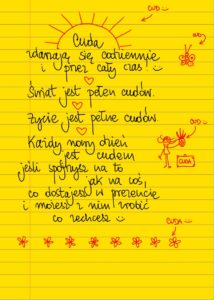 Cuda
zdarzają się codziennie
i przez cały czas!
Świat jest pełen cudów.
Życie jest pełne cudów.
Każdy nowy dzień
jest cudem
jeśli spojrzysz na to
jak na coś,
co dostajesz w prezencie
i możesz z nim zrobić
co zechcesz
CUD
CUD
CUD
CUDA
CUDA